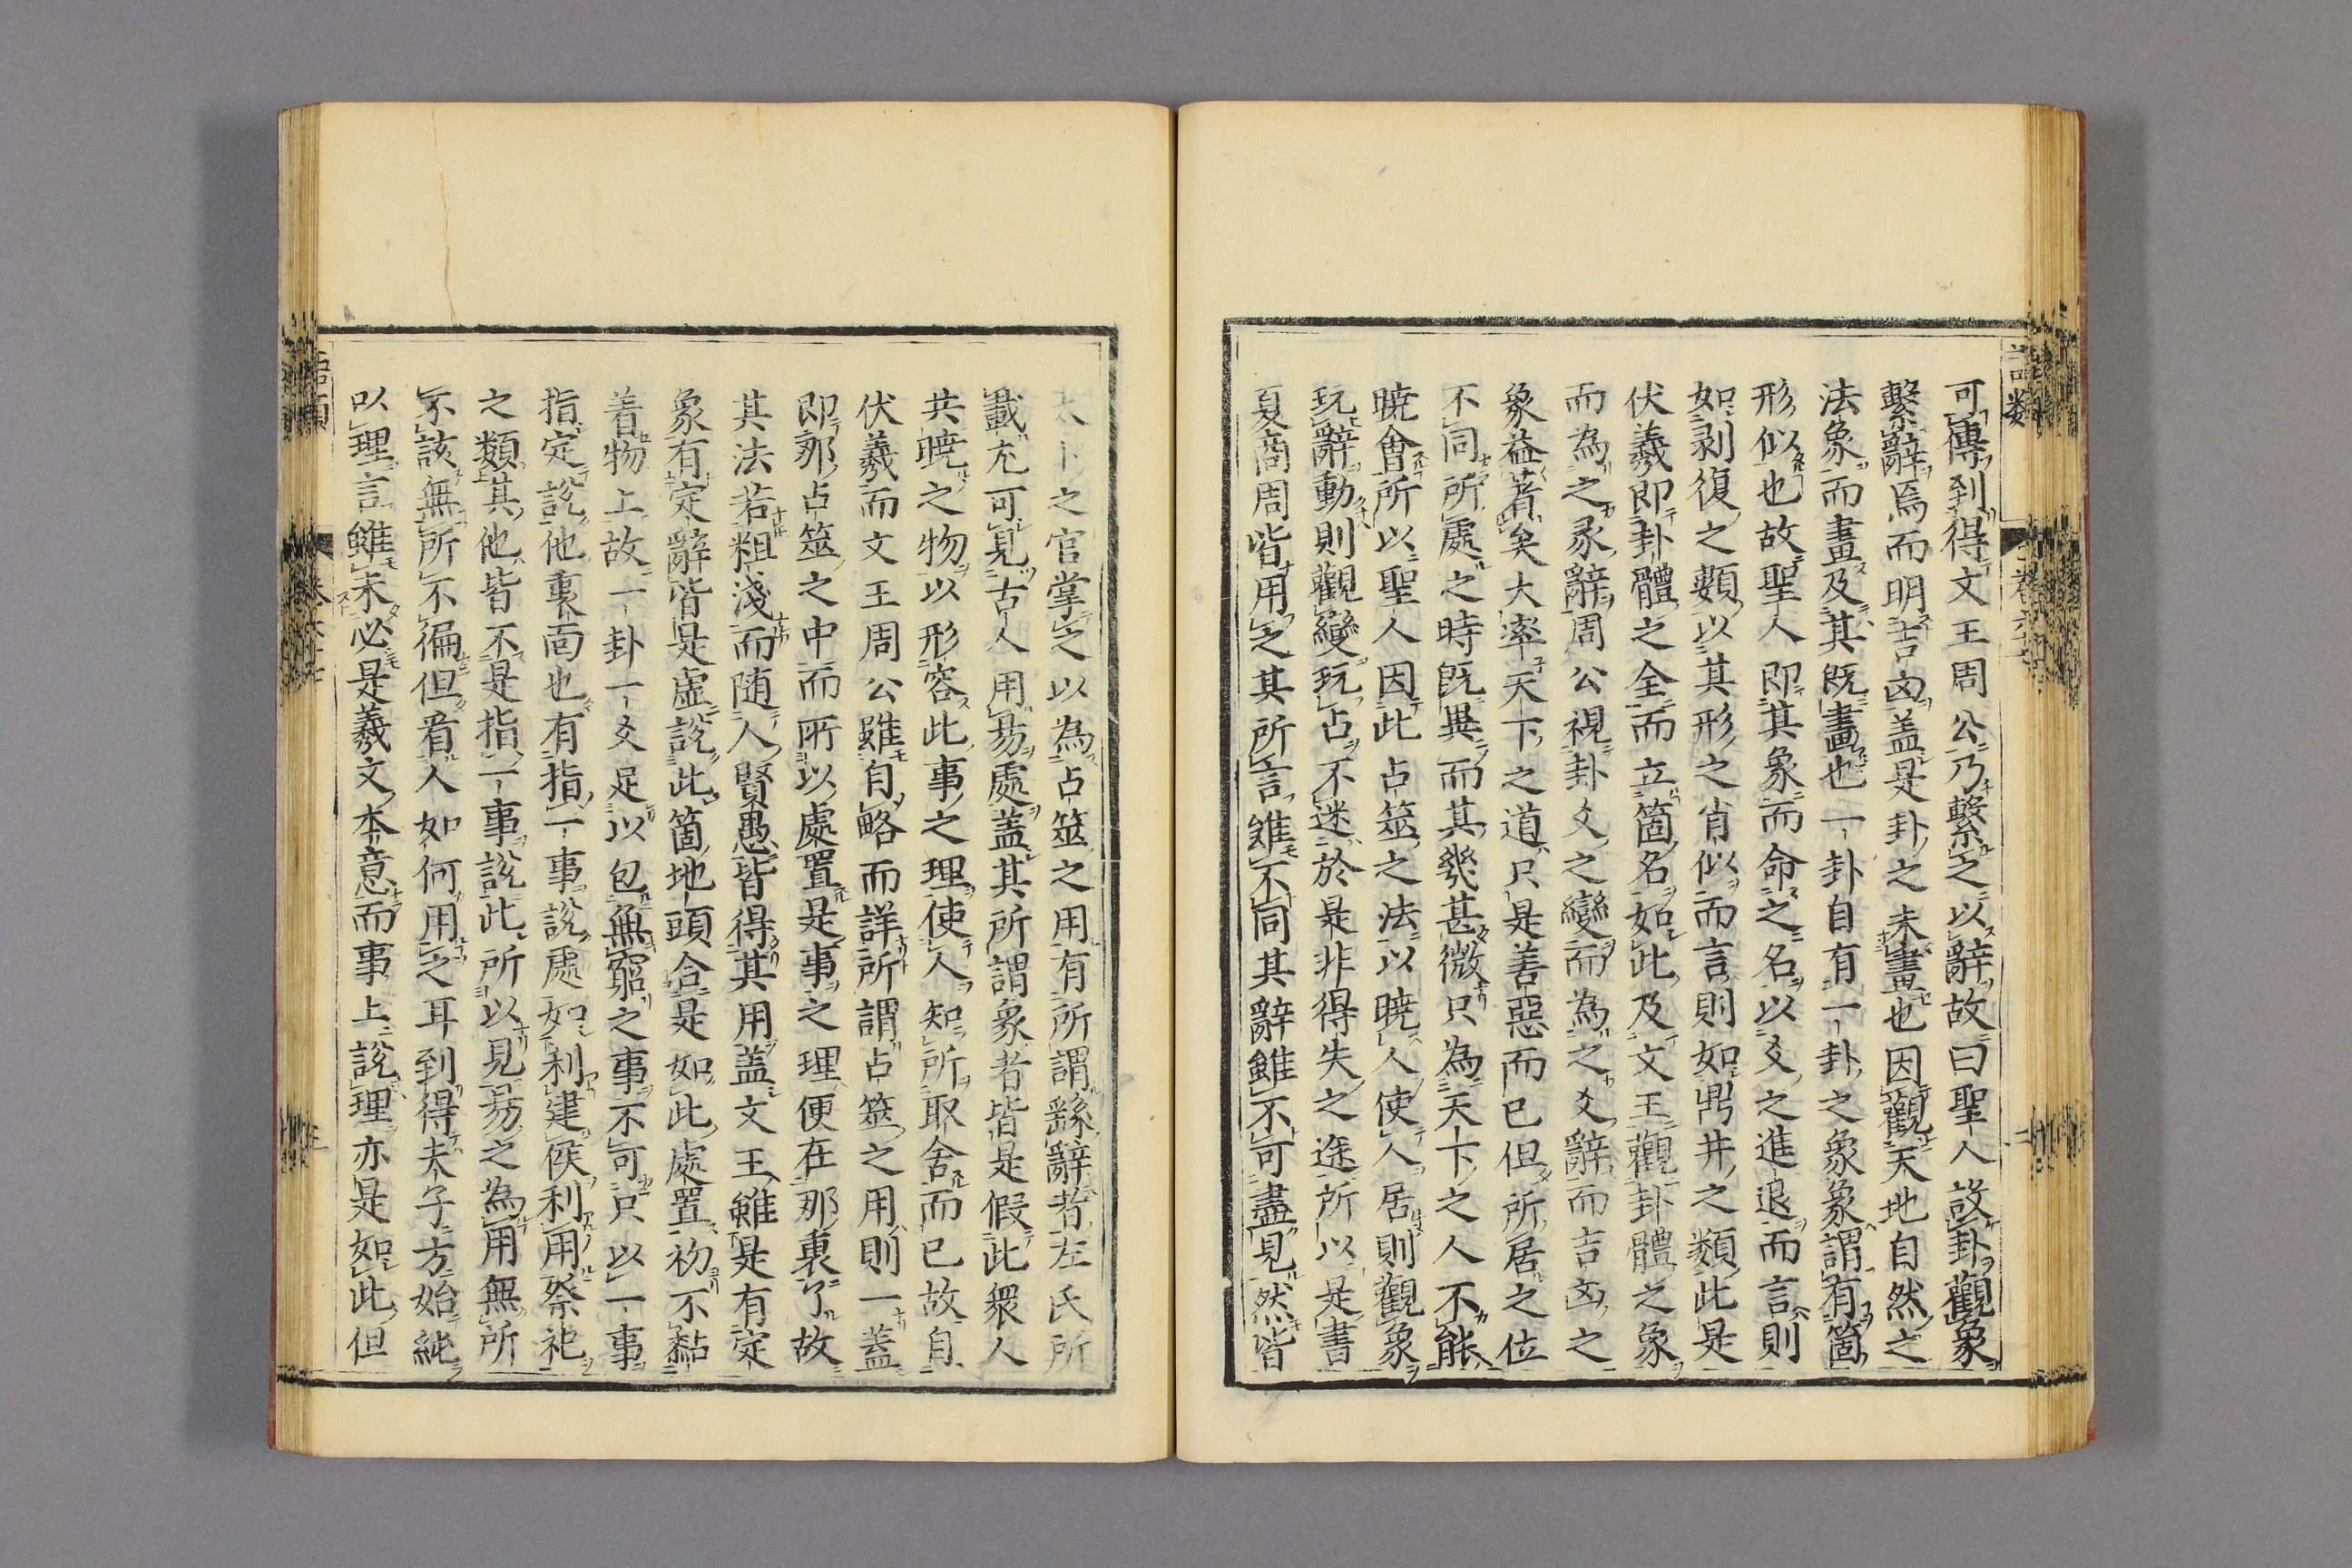 可傳到得文王周公乃繫之以辭故曰聖人設卦觀象
繫辭焉而明吉凶蓋是卦之未畫也因觀天地自然之
法象而畫及其既畫也一卦自有一卦之象象謂有箇
形似也故聖人即其象而命之名以爻之進退而言則
如剥復之類以其形之肖似而言則如鼎井之類此是
伏羲即卦體之全而立箇名如此及文王觀卦體之象
而為之彖辭周公視卦爻之變而為之爻辭而吉凶之
象益著矣大率天下之道只是善惡而已但所居之位
不同所處之時既異而其幾甚微只為天下之人不能
曉會所以聖人因此占筮之法以曉人使人居則觀象
玩辭動則觀變玩占不迷於是非得失之途所以是書
夏商周皆用之其所言雖不同其辭雖不可盡見然皆
太卜之官掌之以為占筮之用有所謂繇辭者左氏所
載尤可見古人用易處蓋其所謂象者皆是假此衆人
共曉之物以形容此事之理使人知所取舍而已故自
伏羲而文王周公雖自略而詳所謂占筮之用則一蓋
即那占筮之中而所以處置是事之理便在那裏了故
其法若粗淺而隨人賢愚皆得其用蓋文王雖是有定
象有定辭皆是虛說此箇地頭合是如此處置初不黏
着物上故一卦一爻足以包無窮之事不可只以一事
指定說他裏面也有指一事說處如利建侯利用祭祀
之類其他皆不是指一事說此所以見易之為用無所
不該無所不徧但看人如何用之耳到得夫子方始純
以理言雖未必是羲文本意而事上說理亦是如此但
語類